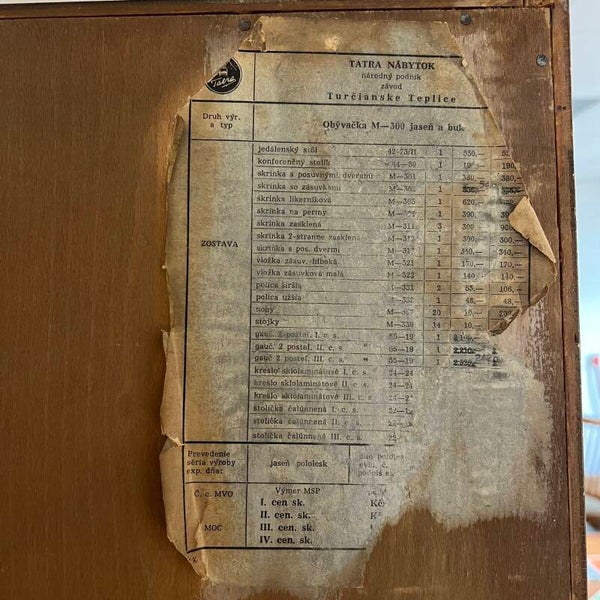 Tatra
TATRA NÁBYTOK
národný podnik
závod
Turčianske Teplice
Druh výr. a typ
Obývačka M—300 jaseň a buk
ZOSTAVA
jedálenský stôl 42-73/II 1 550,— 550,—
konferenčný stolík 44—50 1 190,—
skrinka s posuvnými dverami M—301 1 380,— 380,—
skrinka so zásuvkami M—302 1
skrinka likerníková M—303 1 620,—
skrinka na periny 1 390,— 390
skrinka zasklená M—311 3 300
skrinka 2-stranne zasklená 1 390,—
skrinka s pos. dvermi 1 340,— 340,—
vložka zásuv. hlboká M—321 1 170,— 170,—
vložka zásuvková malá M—322 1 140 110,—
polica širšia M—331 2 53,— 106,—
polica užšia 1 48,— 48,—
nohy 20 10,—
stojky M—339 14 10,—
gauč 2-posteľ. I. c. s. 55—19 1
gauč 2 posteľ. II. c. s. " 55—19 1
gauč 2 posteľ. III. c. s. " 55—19 1
kreslo sklolaminátové I. c. s. 24—24
kreslo sklolaminátové II. c. s. 24—2
kreslo sklolaminátové III. c. s. 24—2
stolička čalúnnená I. c. s.
stolička čalúnnená II. c. s.
stolička čalúnnená III. c. s.
Prevedenie
séria výroby
exp. dňa:
jaseň pololesk
Č. c. MVO
Výmer MSP
I. cen. sk. Kč
II. cen. sk. K
MOC
III. cen. sk.
IV. cen. sk.